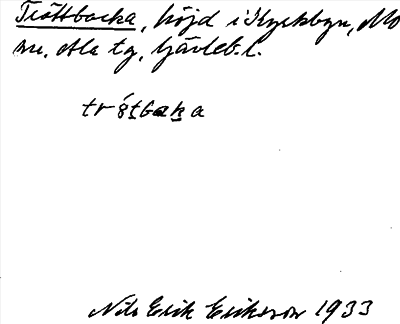 Tröttbacka, höjd i Kyckbyn, Mo
sn. Ala tg, Gävleb. l.
trǿtbaka
Nils Erik Eriksson 1933